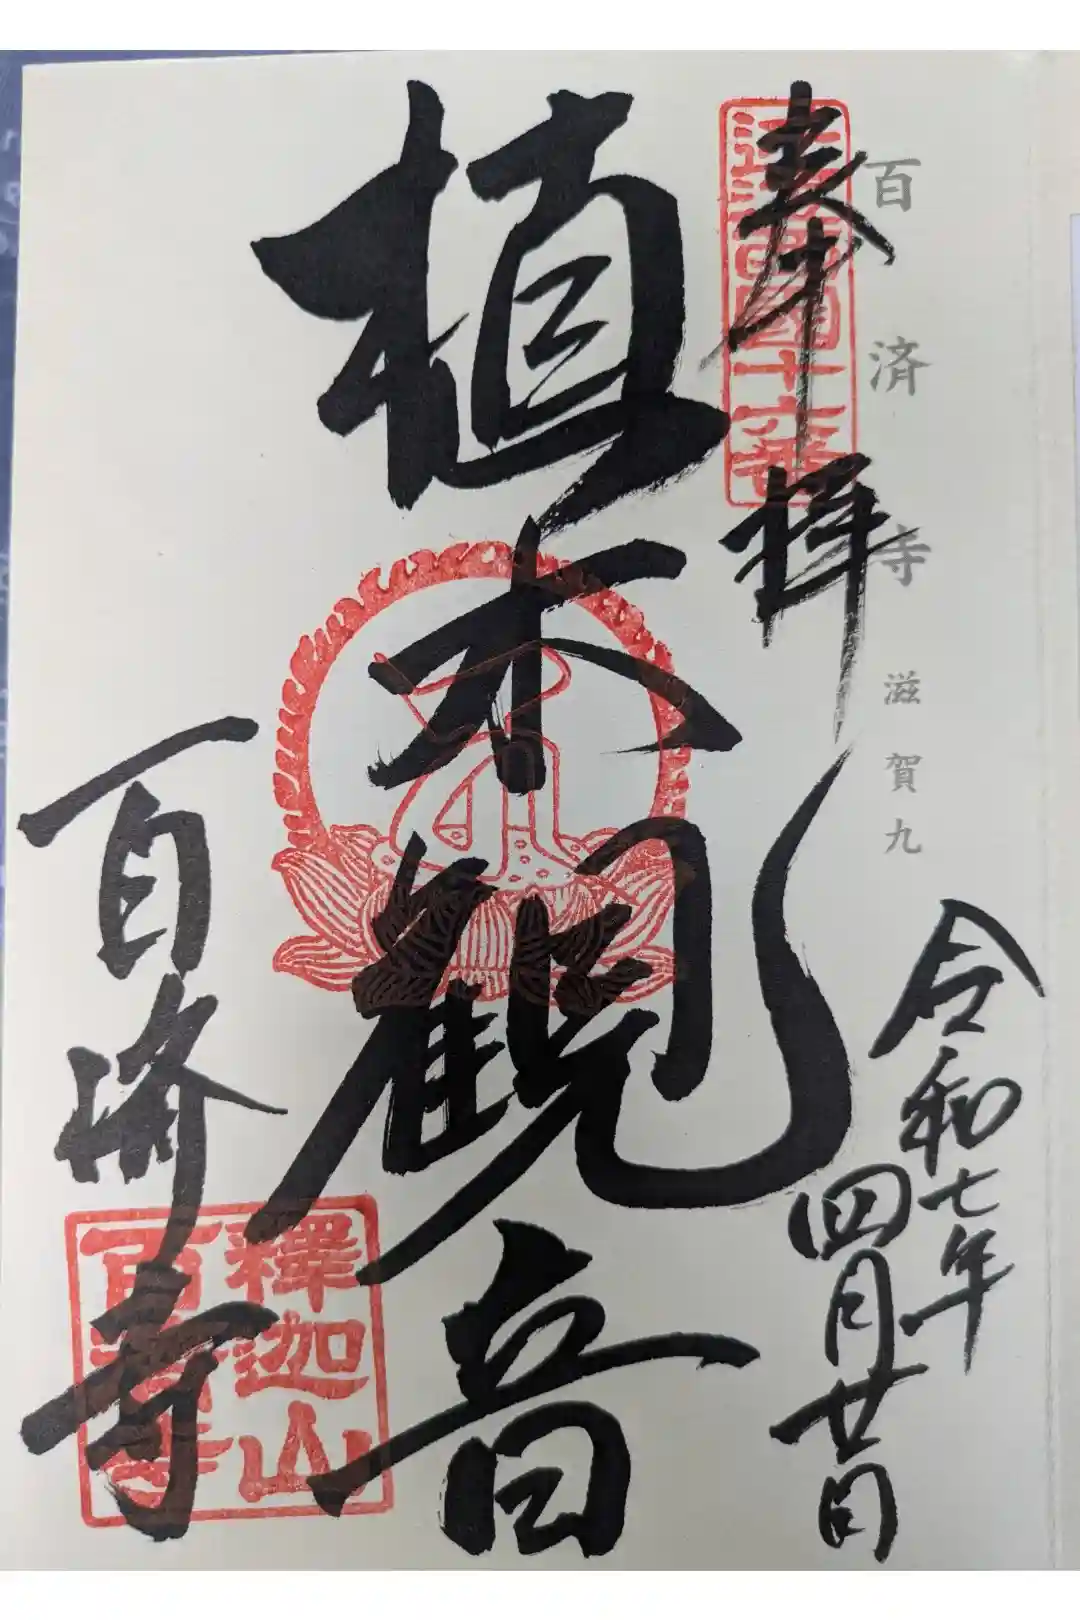 百済寺 滋賀九
奉拝
近江西國十六番
令和七年
四月廿日
植木観音
百済寺
釋迦山
百濟寺